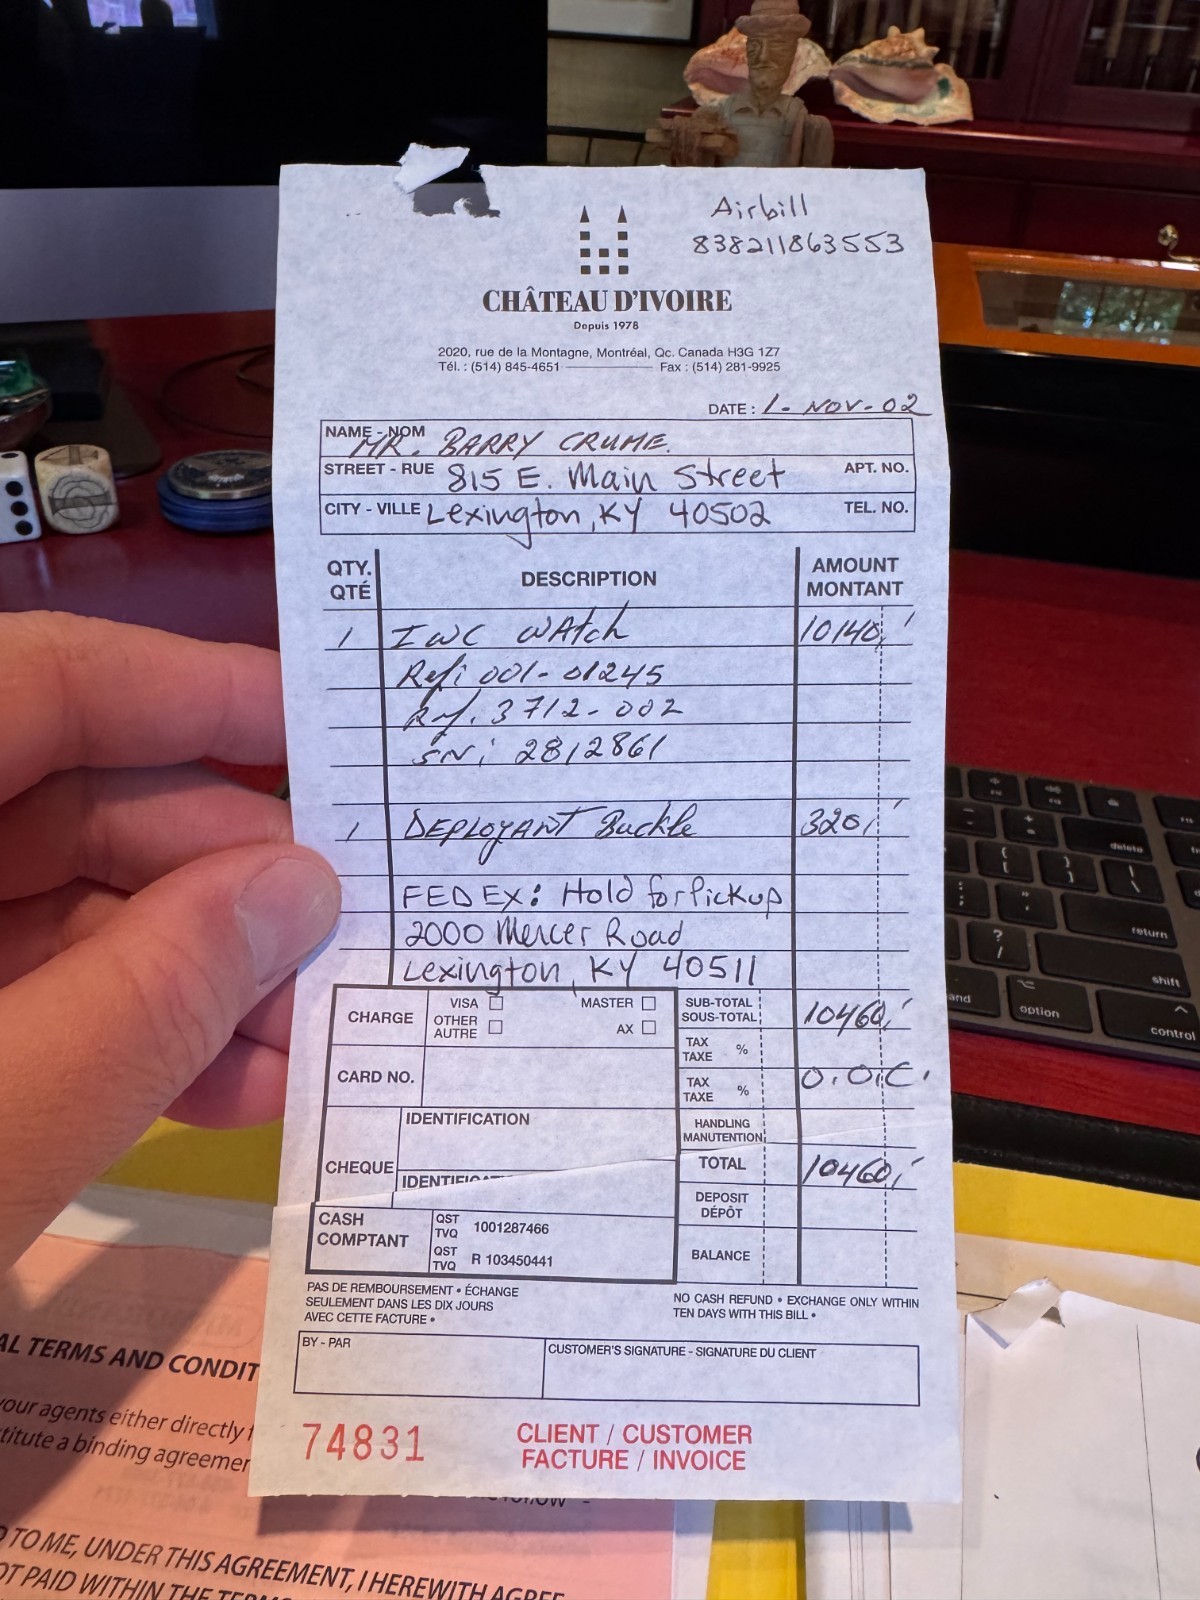 Airbill
838211863553
CHÂTEAU D'IVOIRE
Depuis 1978
2020, rue de la Montagne, Montréal, Qc. Canada H3G 1Z7
Tél. : (514) 845-4651 Fax : (514) 281-9925
DATE : 1-NOV-02
NAME - NOM MR. BARRY CRUME.
STREET - RUE 815 E. Main Street APT. NO.
CITY - VILLE Lexington, KY 40502 TEL. NO.
QTY. QTÉ DESCRIPTION AMOUNT MONTANT
1 IWC WAtch 10140,'
Ref: 001-01245
Ref. 3712-002
SN: 2812861
1 DEPLOYANT Buckle 320,'
FEDEX: Hold for Pickup
2000 Mercer Road
Lexington, KY 40511
CHARGE VISA MASTER
OTHER AUTRE AX
SUB-TOTAL SOUS-TOTAL 10460,'
TAX TAXE %
CARD NO. TAX TAXE % O.O.C.
IDENTIFICATION
HANDLING MANUTENTION
CHEQUE
TOTAL 10460,'
DEPOSIT DÉPÔT
CASH COMPTANT
QST TVQ 1001287466
QST TVQ R 103450441
BALANCE
PAS DE REMBOURSEMENT • ÉCHANGE
SEULEMENT DANS LES DIX JOURS
AVEC CETTE FACTURE •
NO CASH REFUND • EXCHANGE ONLY WITHIN
TEN DAYS WITH THIS BILL •
BY - PAR CUSTOMER'S SIGNATURE - SIGNATURE DU CLIENT
74831
CLIENT / CUSTOMER
FACTURE / INVOICE
AL TERMS AND CONDIT
your agents either directly
titute a binding agreemen
TO ME, UNDER THIS AGREEMENT, I HEREWITH AGREE
OT PAID WITHIN THE
delete
return
shift
option
control